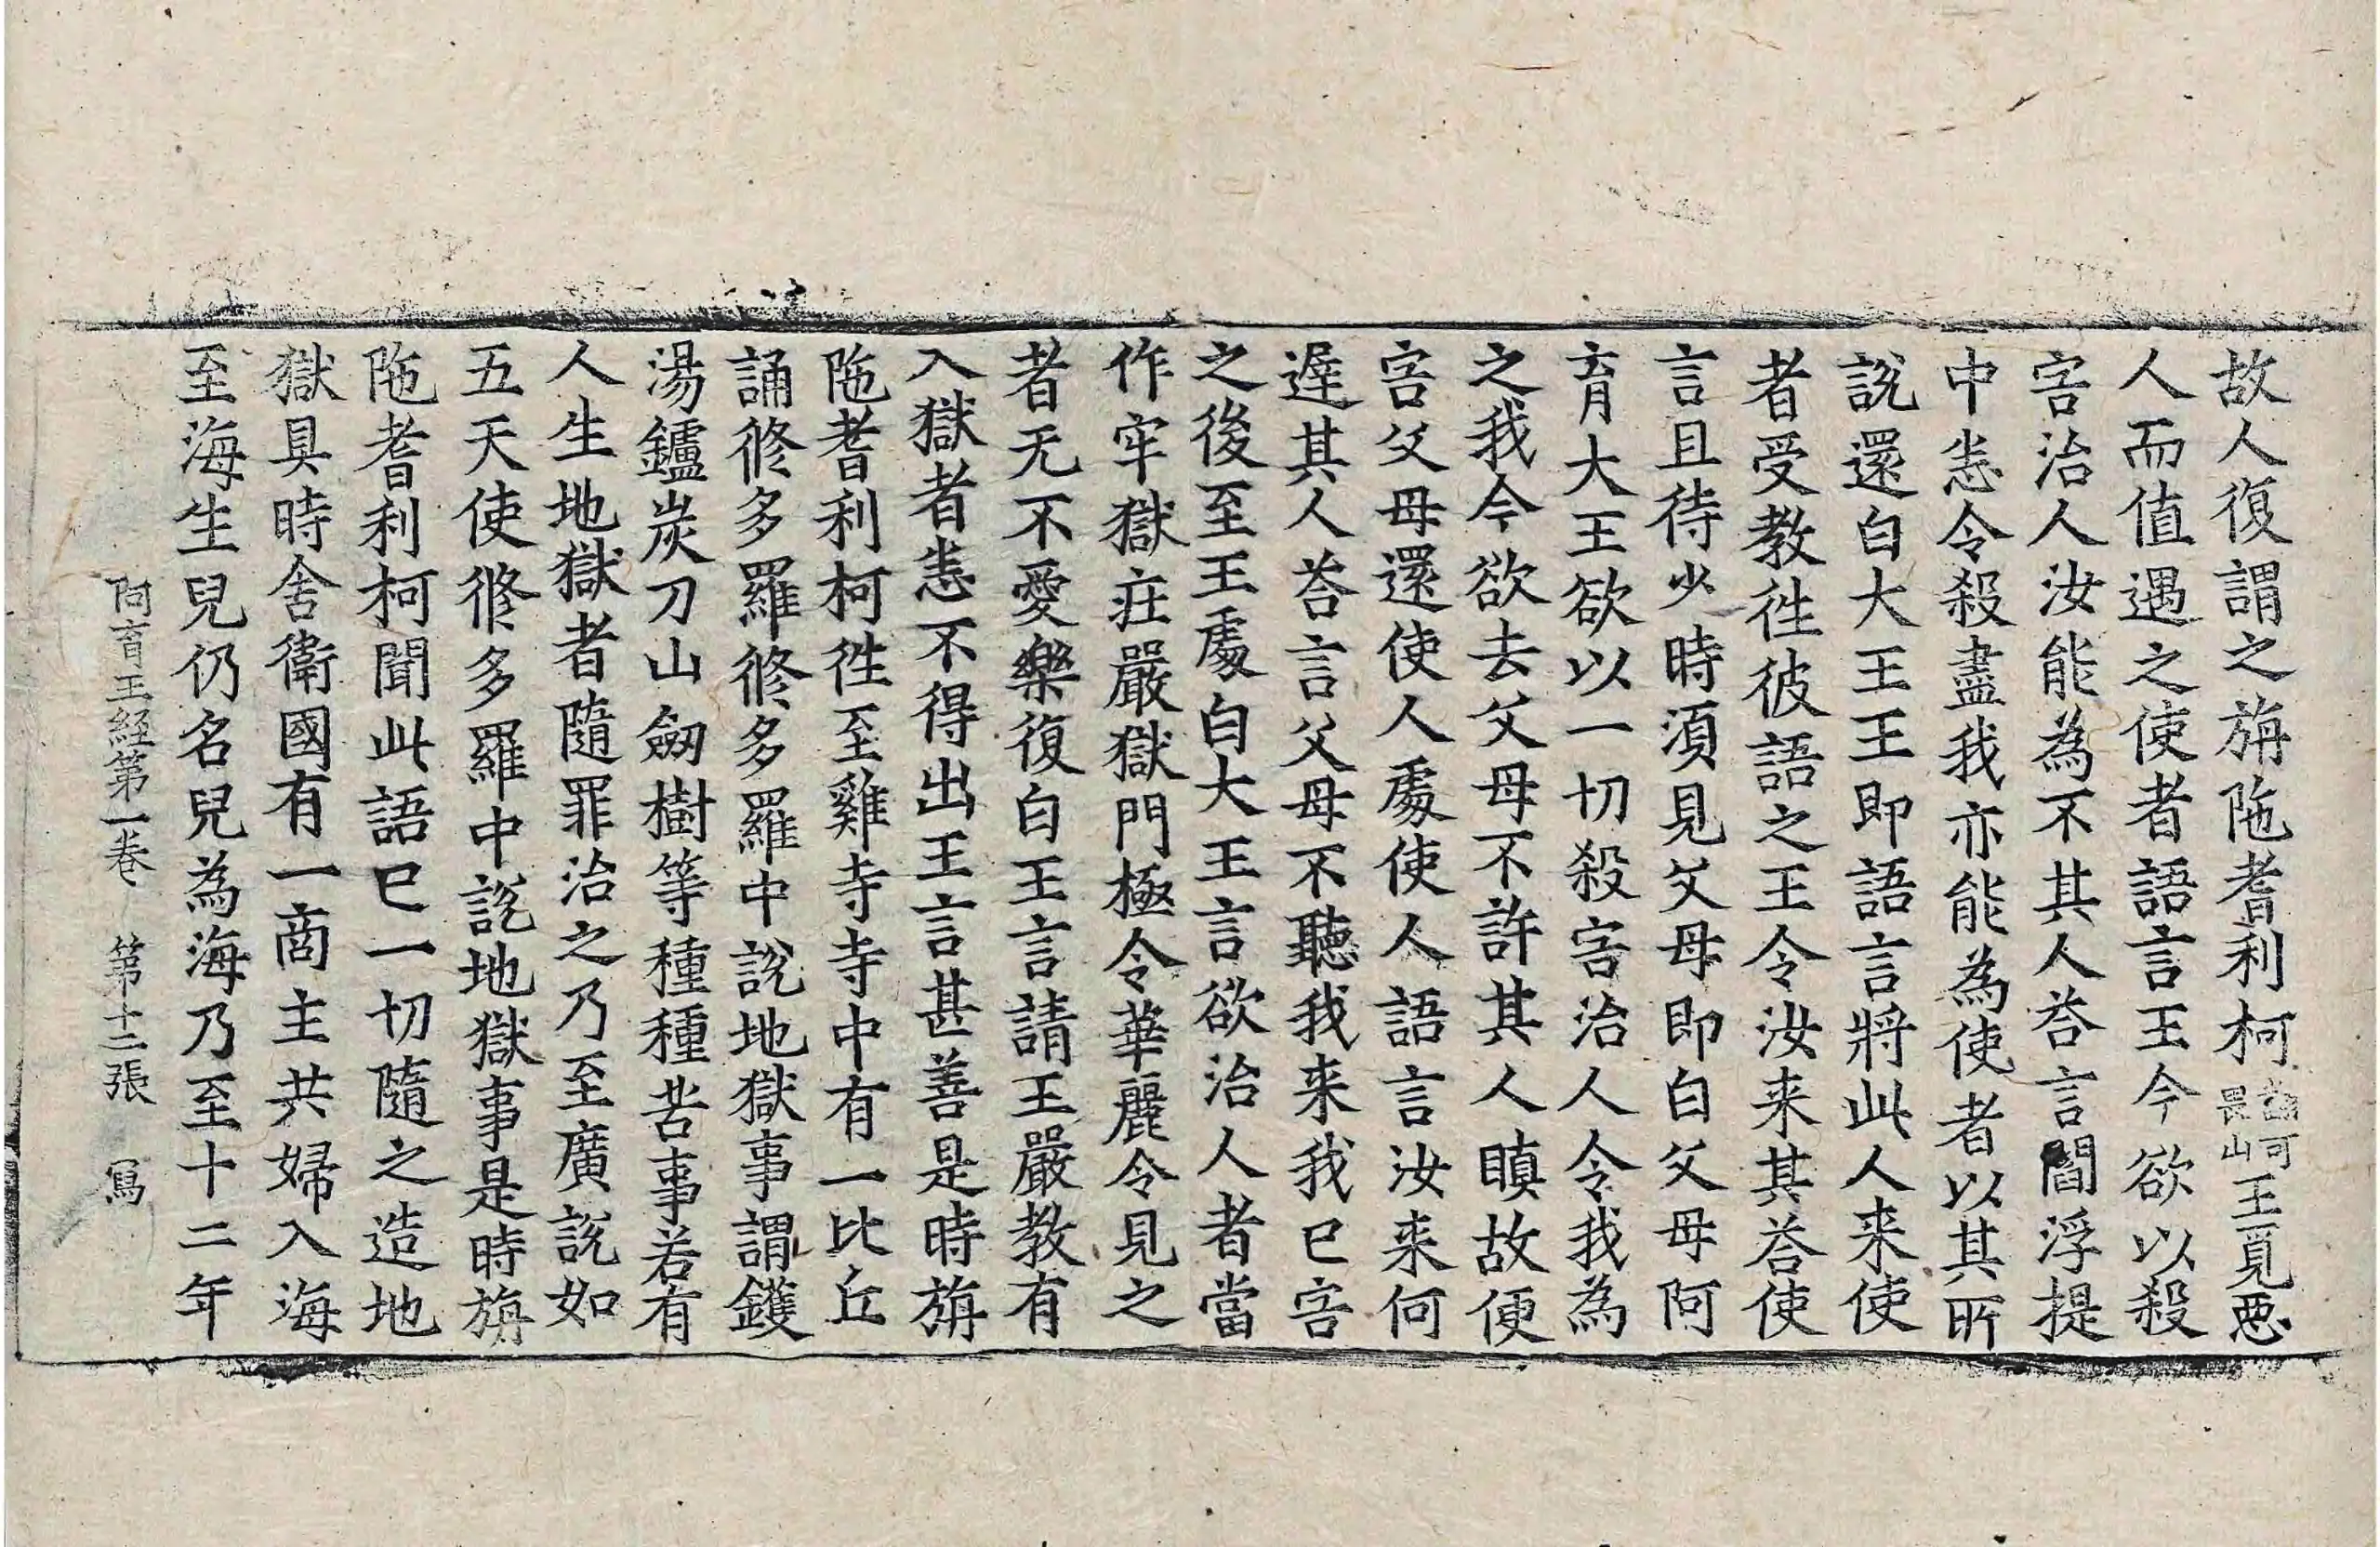 故人復謂之旃陁耆利柯畏山可王覓惡
人而值遇之使者語言王今欲以殺
害治人汝能為不其人荅言閻浮提
中恙令殺盡我亦能為使者以其所
說還白大王王即語言將此人来使
者受教徃彼語之王令汝来其荅使
言且待少時湏見父母即白父母阿
育大王欲以一切殺害治人令我為
之我今欲去父母不許其人瞋故便
害父母還使人處使人語言汝来何
遅其人荅言父母不聽我来我已害
之後至王處白大王言欲治人者當
作牢獄莊嚴獄門極令華麗令見之
者无不愛樂復白王言請王嚴教有
入獄者恙不得出王言甚善是時旃
陁耆利柯徃至雞寺寺中有一比丘
誦修多羅修多羅中說地獄事謂鑊
湯鑪炭刀山劒樹等種種苦事若有
人生地獄者隨罪治之乃至廣說如
五天使修多羅中說地獄事是時旃
陁耆利柯聞此語已一切隨之造地
獄具時舍衛國有一商主共婦入海
至海生兒仍名兒為海乃至十二年
阿育王経第一巻 第十二張 寫